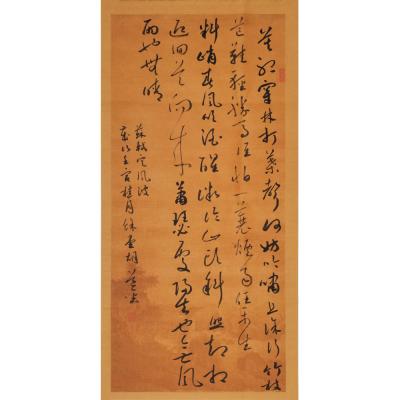 莫聽穿林打葉聲何妨吟嘯且徐行竹杖
芒鞋輕勝馬誰怕一蓑煙雨任平生
料峭春風吹酒醒微冷山頭斜照卻相
迎回首向來蕭瑟處歸去也無風
雨也無晴
蘇軾定風波
歲次壬寅桂月